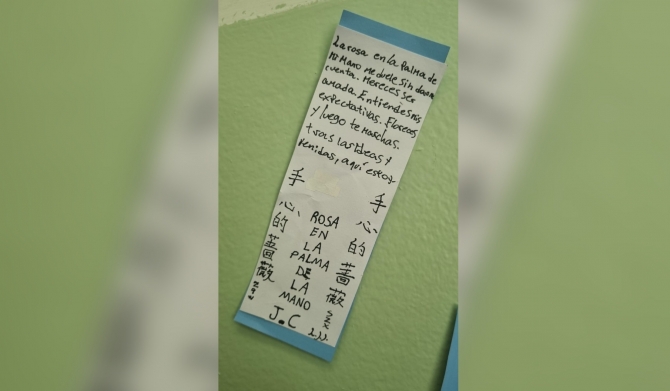 La rosa en la Palma de
Mi Mano me duele sin darme
cuenta. Mereces ser
amada. Entiendes mis
expectativas. Floreces
y luego te marchas.
tras las ideas y
venidas, aquí estoy
手心的薔薇
ROSA
EN
LA
PALMA
DE
LA
MANO
手心的薔薇
J.C